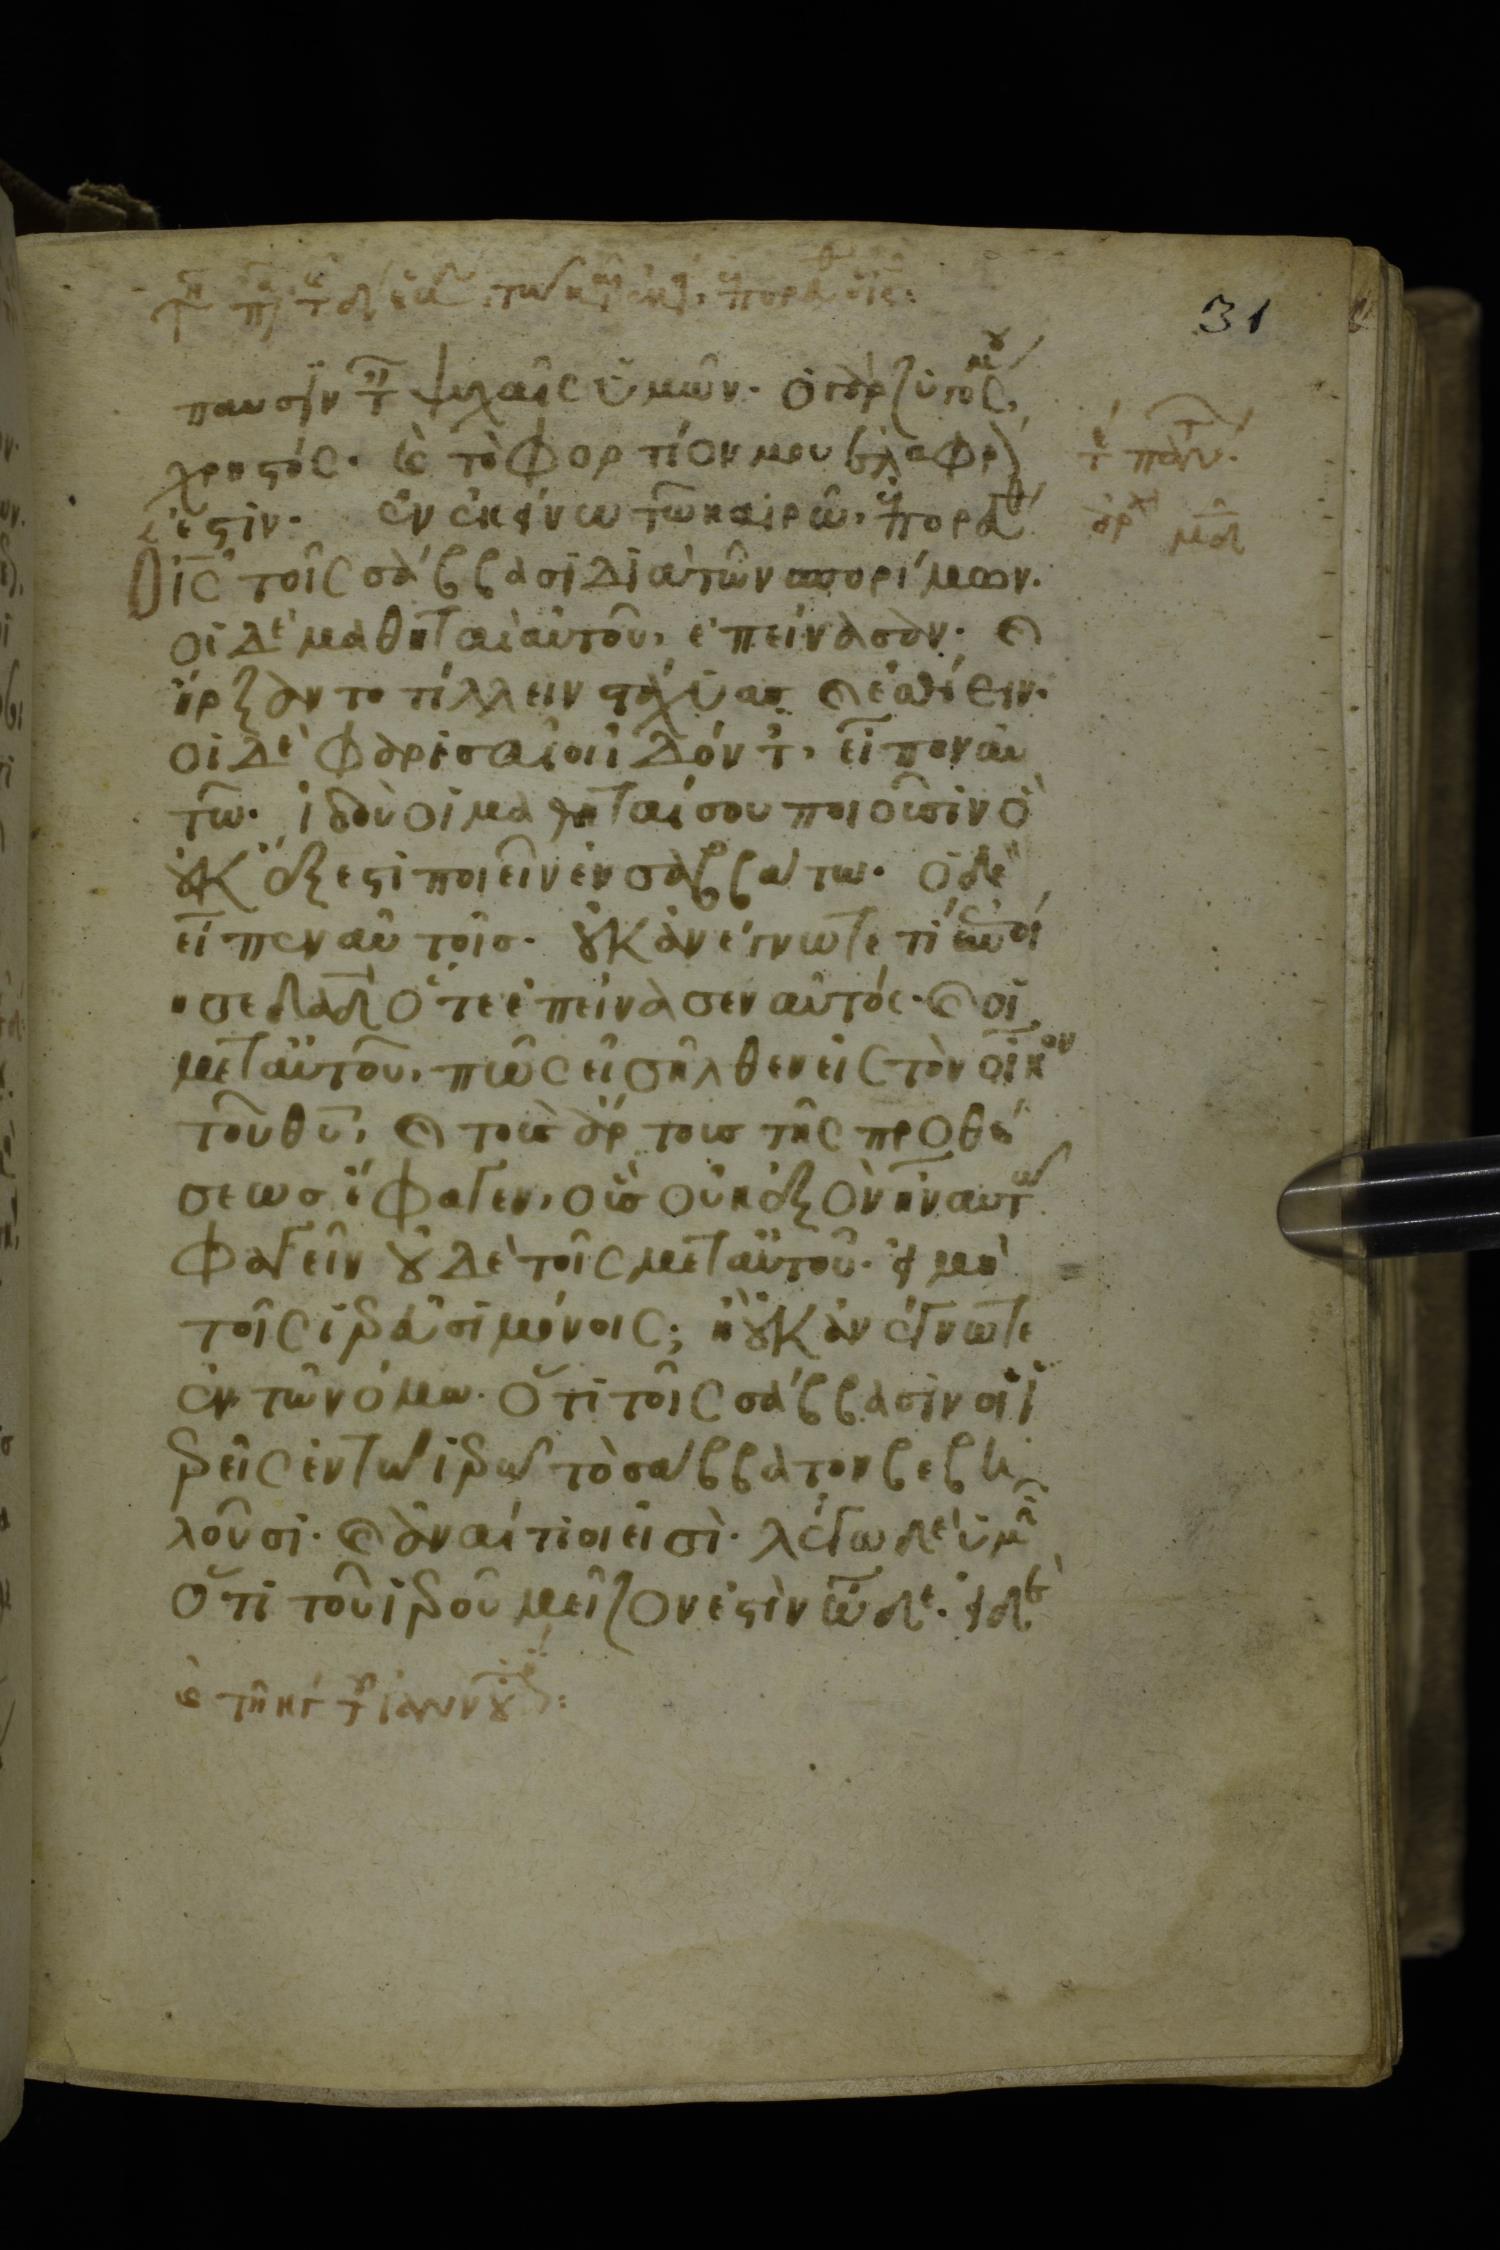 31
παυσιν τ ψυχαῖς ὑμῶν· ὁ γὰρ ζυγός μου
χρηστός· καὶ τὸ φορτίον μου ἐλαφρ
ἐστὶν· ἐν ἐκείνω τῶ καιρῶ, ἐπορεύθ
ὁ ἰς τοῖς σάββασι διὰ τῶν σπορίμων·
οἱ δὲ μαθηταὶ αὐτοῦ, ἐπείνασαν· καὶ
ἤρξαντο τίλλειν στάχυας καὶ ἐσθίειν·
οἱ δὲ φαρισαῖοι ἰδόντ, εἶπον αὐ
τῶ· ἰδοὺ οἱ μαθηταί σου ποιοῦσιν ὃ
οὐκ ἔξεστι ποιεῖν ἐν σαββάτω· ὁ δὲ
εἶπεν αὐτοῖς· οὐκ ἀνέγνωτε τί ἐποί
ησε δαδ ὅτε ἐπείνασεν αὐτός· καὶ οἱ
μετ αὐτοῦ, πῶς εἰσῆλθεν εἰς τὸν οἶκον
τοῦ θυ, καὶ τοὺς ἄρτους τῆς προθέ
σεως ἔφαγεν, οὓς οὐκ ἐξὸν ἦν αὐτῶ
φαγεῖν οὐδὲ τοῖς μετ αὐτοῦ· εἰ μὴ
τοῖς ἱερεῦσι μόνοις; ἢ οὐκ ἀνέγνωτε
ἐν τῶ νόμω· ὅτι τοῖς σάββασιν οἱ ἱ
ερεῖς ἐν τῶ ἱερῶ τὸ σάββατον βεβη
λοῦσι· καὶ ἀναίτιοι εἰσὶ· λέγω δὲ ὑμῖν
ὅτι τοῦ ἱεροῦ μεῖζον ἐστὶν ὧδε· εἰ δὲ